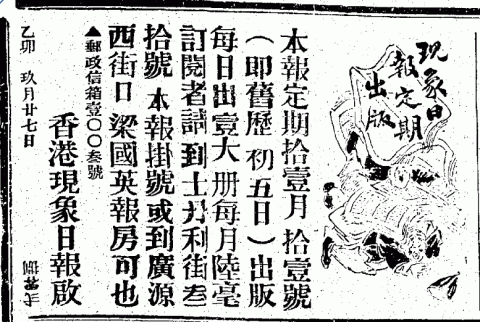 現象日
報定期
出版
本報定期拾壹月拾壹號
（即舊歷初五日）出版
每日出壹大册每月陸毫
訂閱者請到士丹利街叁
拾號 本報掛號或到廣源
西街口 梁國英報房可也
▲郵政信箱壹〇〇叁號
香港現象日報啟
乙卯 玖月廿七日